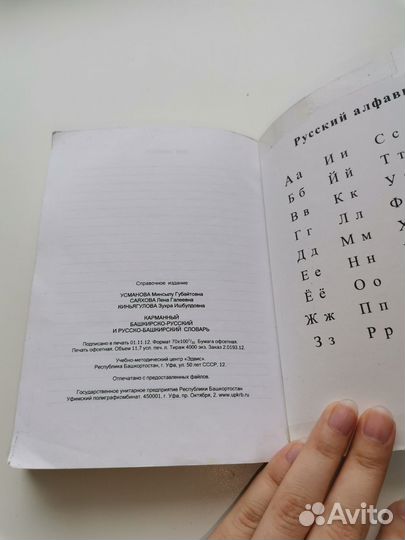 Справочное издание
УСМАНОВА Минсылу Губайтовна
САЯХОВА Лена Галеевна
КИНЬЯГУЛОВА Зухра Ишбулдовна
КАРМАННЫЙ
БАШКИРСКО-РУССКИЙ
И РУССКО-БАШКИРСКИЙ СЛОВАРЬ
Подписано в печать 01.11.12. Формат 70х100¹/₃₂. Бумага офсетная.
Печать офсетная. Объем 11,7 усл. печ. л. Тираж 4000 экз. Заказ 2.0193.12.
Учебно-методический центр «Эдвис».
Республика Башкортостан, г. Уфа, ул. 50 лет СССР, 12.
Отпечатано с предоставленных файлов.
Государственное унитарное предприятие Республики Башкортостан
Уфимский полиграфкомбинат. 450001, г. Уфа, пр. Октября, 2. www.upkrb.ru
Русский
А а И и С с
Б б Й й Т т
В в К к У
Г г Л л Ф
Д д М м Х
Е е Н н
Ё ё О о
Ж ж П п
З з Р р
Avito